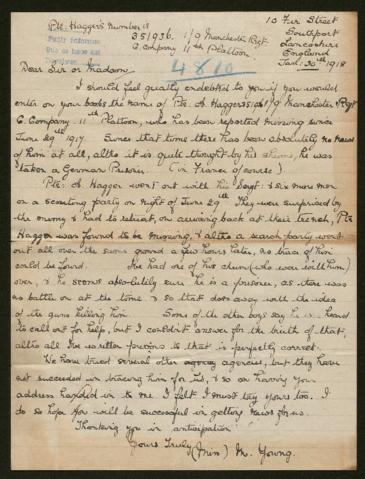 Pte. Hagger's Number is
351936. 1/9 Manchester Regt.
C. Company 11th Platoon
10 Fir Street
Southport
Lancashire
England
Jan: 30th 1918
4810
Dear Sir or Madam,
I should feel greatly endebted to you if you would
enter on your books the name of Pte. A. Hagger 351936 1/9 Manchester Regt
C. Company 11th Platoon, who has been reported missing since
June 29th 1917. Since that time there has been absolutely no trace
of him at all, altho it is quite thought by his chums, he was
taken a German Prisoner. (in France of course)
Pte. A. Hagger went out with his Sergt. & six more men
on a scouting party on night of June 29th. They were surprised by
the enemy & had to retreat, on arriving back at their trench, Pte
Hagger was found to be missing, & altho a search party went
out all over the same ground a few hours later, no trace of him
could be found. I've had one of his chums (who was with him)
over, & he seems absolutely sure he is a prisoner, as there was
no battle on at the time & so that does away with the idea
of the guns killing him. Some of the other boys say he was heard
to call out for help, but I couldn't answer for the truth of that,
altho all I've written previous to that is perfectly correct.
We have tried several other agencies, but they have
not succeeded in tracing him for us, & so on having your
address handed in to me I felt I must try yours too. I
do so hope you will be successful in getting news for us.
Thanking you in anticipation
Yours Truly (Miss) M. Young.